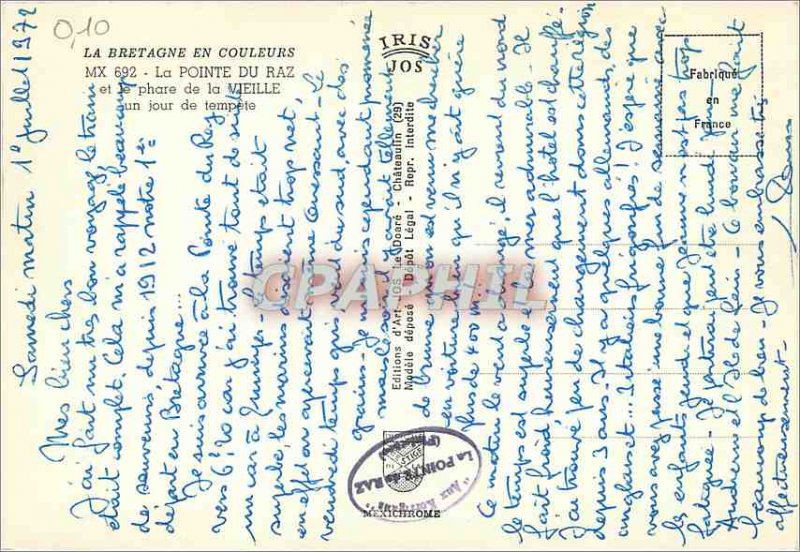 0,10
LA BRETAGNE EN COULEURS
MX 692 - La POINTE DU RAZ
et le phare de la VIEILLE
un jour de tempête
IRIS
JOS
Fabriqué
en
France
Editions d'Art JOS Le Doaré - Châteaulin (29)
Modèle déposé - Dépôt Légal - Repr. Interdite
MEXICHROME
La POINTE du RAZ
CPAPHIL
Samedi matin 1er juillet 1972
Mes bien chers
J'ai fait un très bon voyage, le train
était complet. Cela m'a rappelé beaucoup
de souvenirs depuis 1912 notre 1er
départ en Bretagne...
Je suis arrivée à la Pointe du Raz
vers 6h20 car j'ai trouvé tout de suite
un car à Quimper - le temps était
superbe, les marins disaient trop net,
en effet on apercevait Ouessant - Le
vendredi temps gris, vent du sud avec des
grains - Je me suis cependant promenée
mais le soir il y avait tellement
de brume qu'on est venu me chercher
en voiture bien qu'il n'y ait guère
plus de 400 m.
Ce matin le vent a changé, il revient du nord
le temps est superbe et la mer admirable - Il
fait froid heureusement que l'hôtel est chauffé.
J'ai trouvé peu de changement dans cette région
depuis 3 ans - Il y a quelques allemands, des
anglais et... 2 italiens frigorifiés ! J'espère que
vous avez passé une bonne fin de semaine avec
les enfants, jeudi et que Jeanne n'est pas trop
fatiguée - Je partirai peut être lundi pour
Audierne et l'Ile de Sein - Ce bon air me fait
beaucoup de bien - Je vous embrasse très
affectueusement -